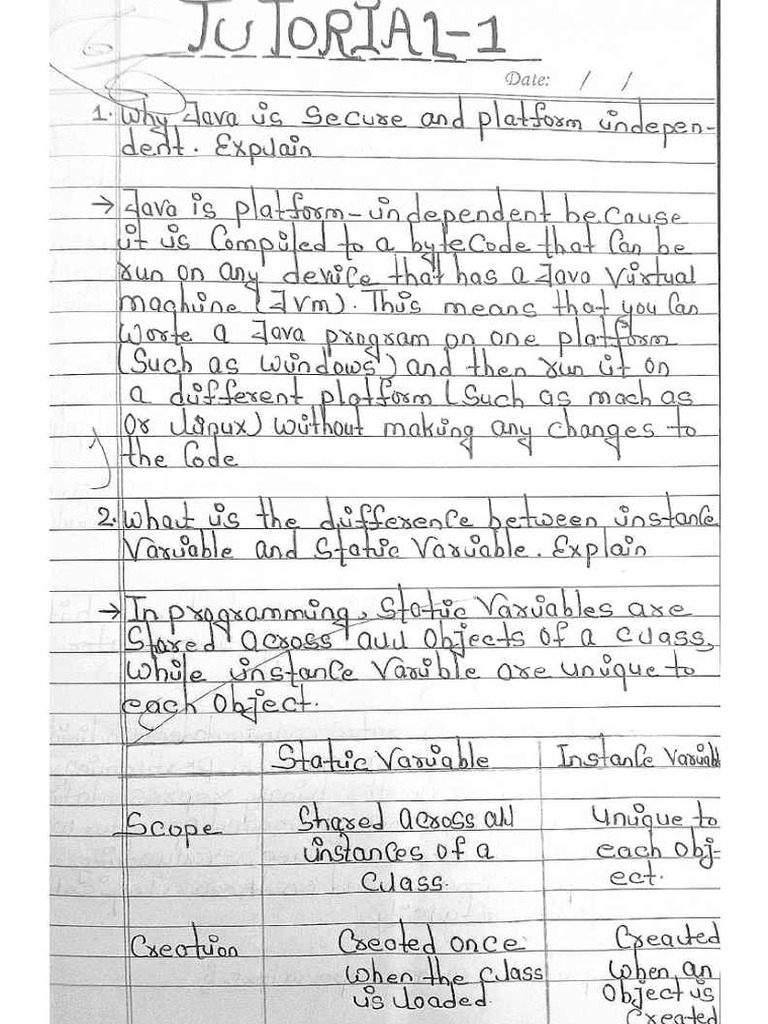 TUTORIAL-1
Date: / /
1. Why Java is Secure and platform indepen-
dent. Explain
→ Java is platform-independent because
it is Compiled to a byteCode that Can be
run on any device that has a Java Virtual
machine (JVM). This means that you Can
Worte a Java program on one platform
(Such as Windows) and then run it on
a different platform (Such as mach as
Or linux) Without making any changes to
the Code
2. What is the difference between instance
Variable and Static Variable. Explain
→ In programming, Static Variables are
Stared across all Objects of a class,
While instance Varible are unique to
each Object.
Static Variable Instance Variabl
Scope Shared across all Unique to
instances of a each Obj-
Class. ect.
Creation Created once Created
When the Class When an
is loaded. Object is
Created